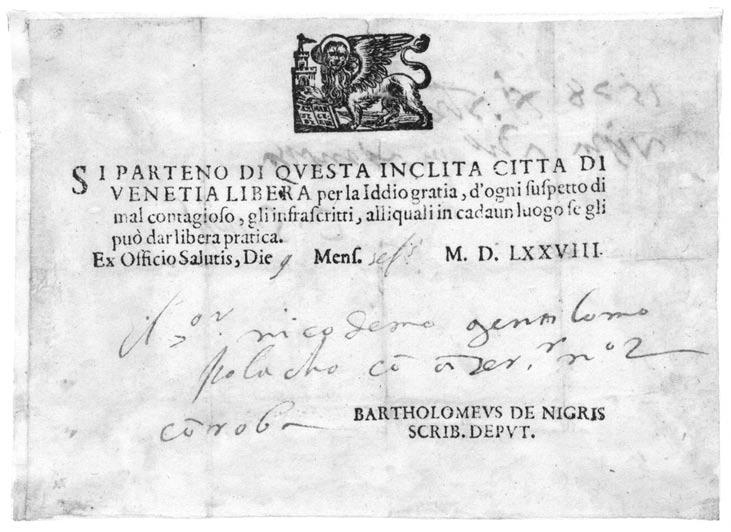 SI PARTENO DI QVESTA INCLITA CITTA DI
VENETIA LIBERA per la Iddio gratia, d'ogni suspetto di
mal contagioso, gli infrascritti, alli quali in cadaun luogo se gli
può dar libera pratica.
Ex Officio Salutis, Die 9 Mens. M. D. LXXVIII.
nicodemo gentilomo
polacho cō nº 2
cō roba
BARTHOLOMEVS DE NIGRIS
SCRIB. DEPVT.